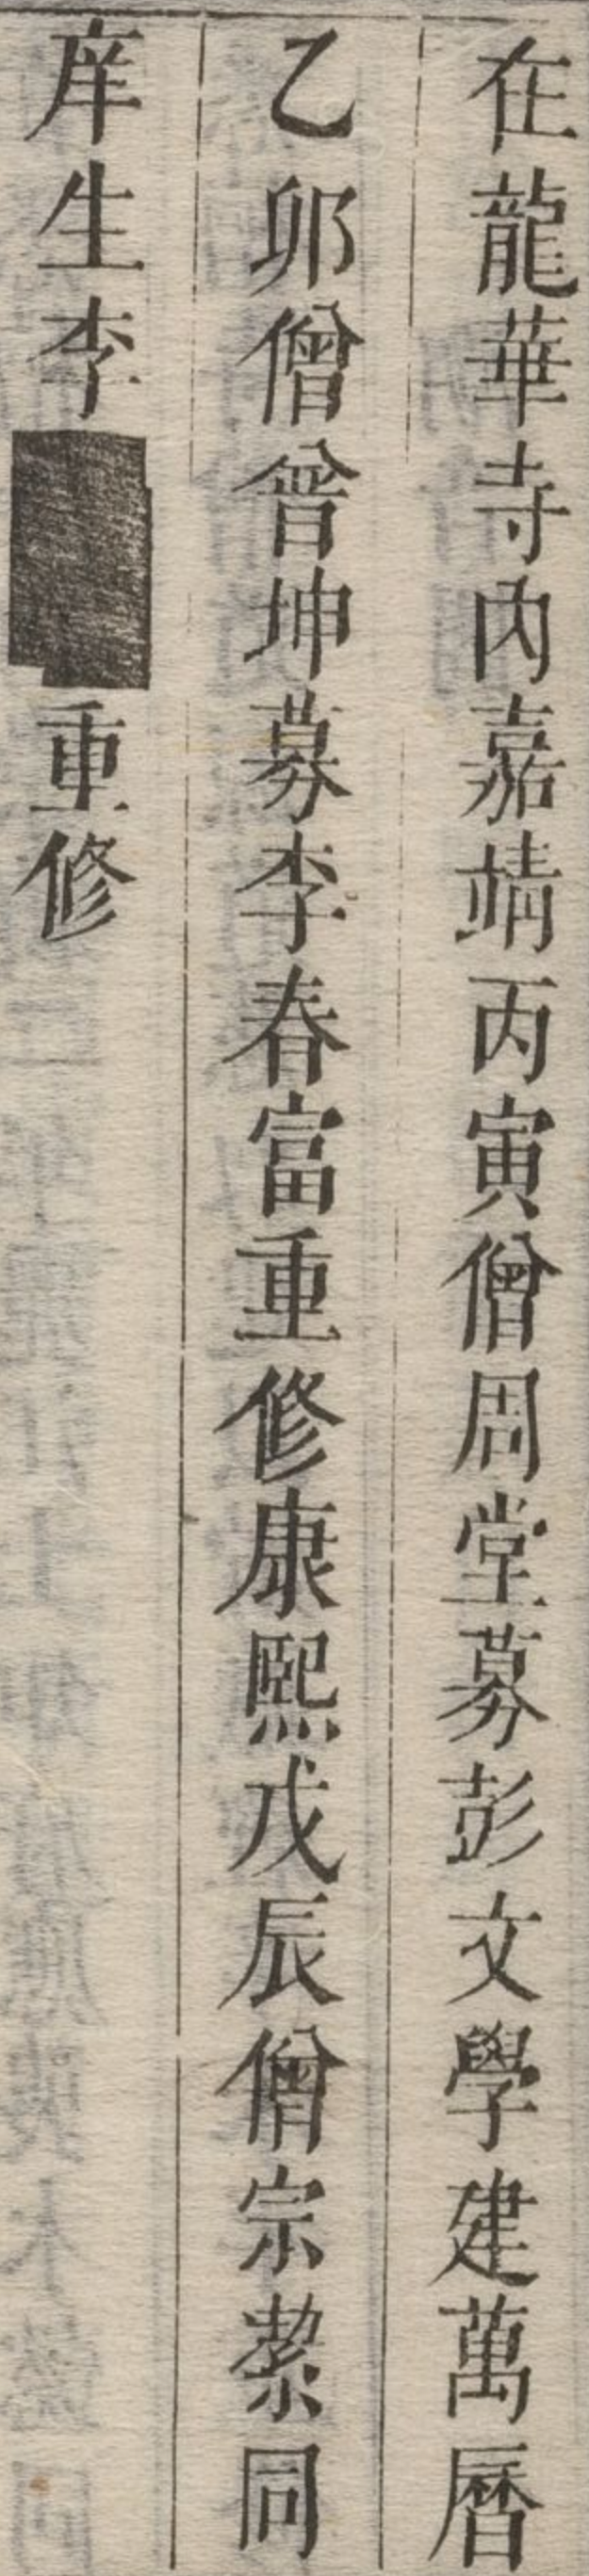 在龍華寺內嘉靖丙寅僧周堂募彭文學建萬曆
乙卯僧曾坤募李春富重修康熙戊辰僧宗絜同
庠生李重修